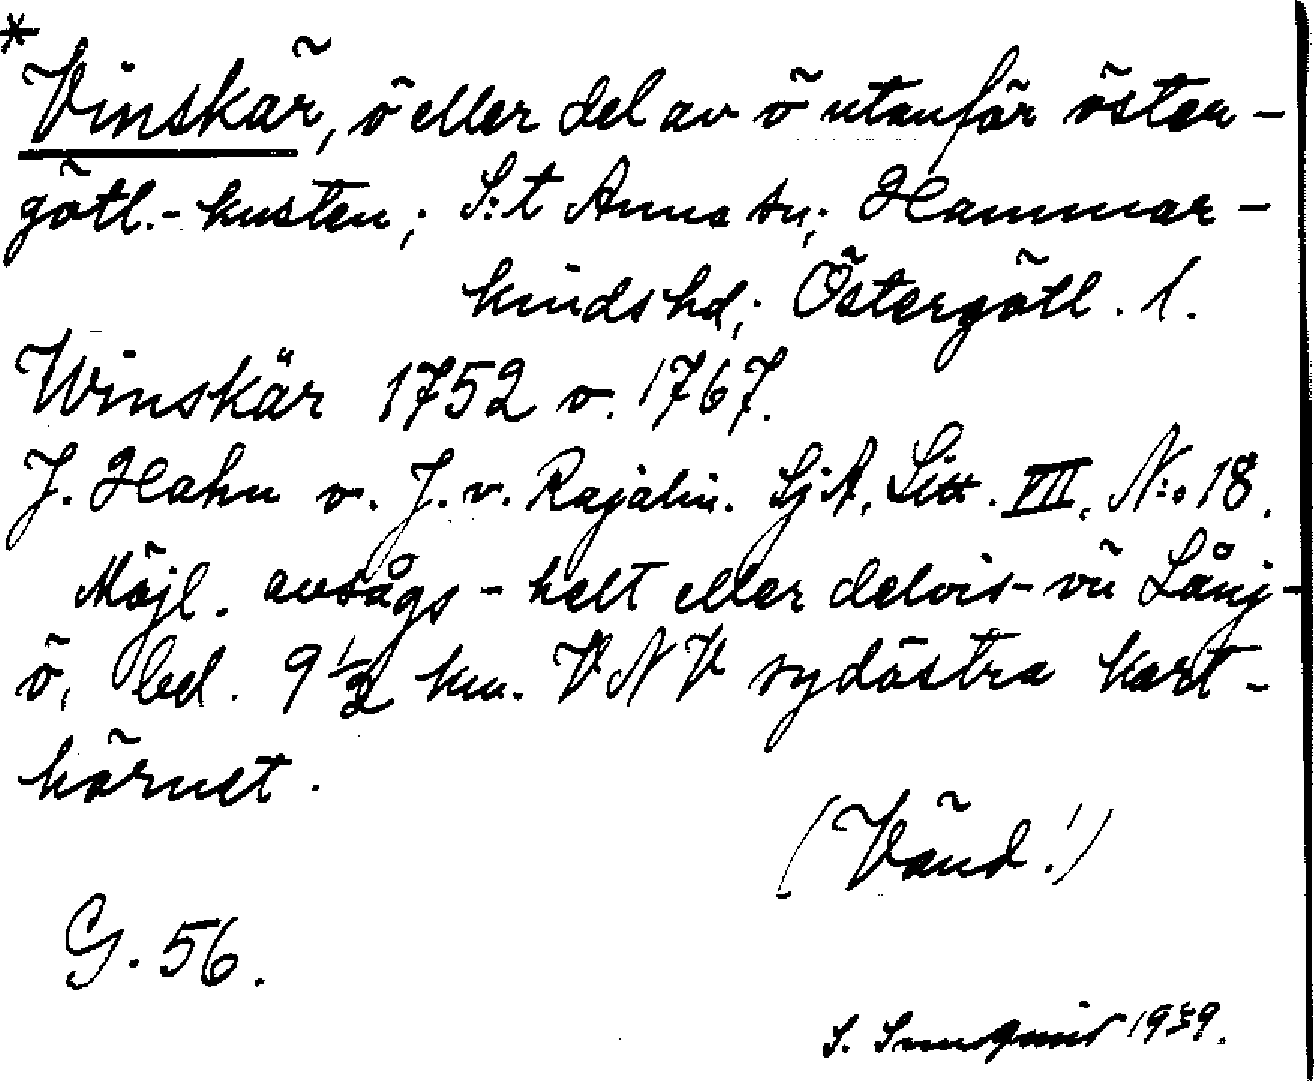 *
Vinskär, ö eller del av ö utanför östen-
götl.-kusten; S:t Anna sn; Hammar-
kinds hd; Östergötl. l.
Winskär 1752 o. 1767.
J. Hahn o. J. v. Rajalin. SjA. Litt. VII. N:o 18.
Möjl. avsågs - helt eller delvis - vü Lång-
ö, bel. 9 1/2 km. VNV sydöstra kart-
hörnet.
(Vänd!)
G. 56.
S. 1939.